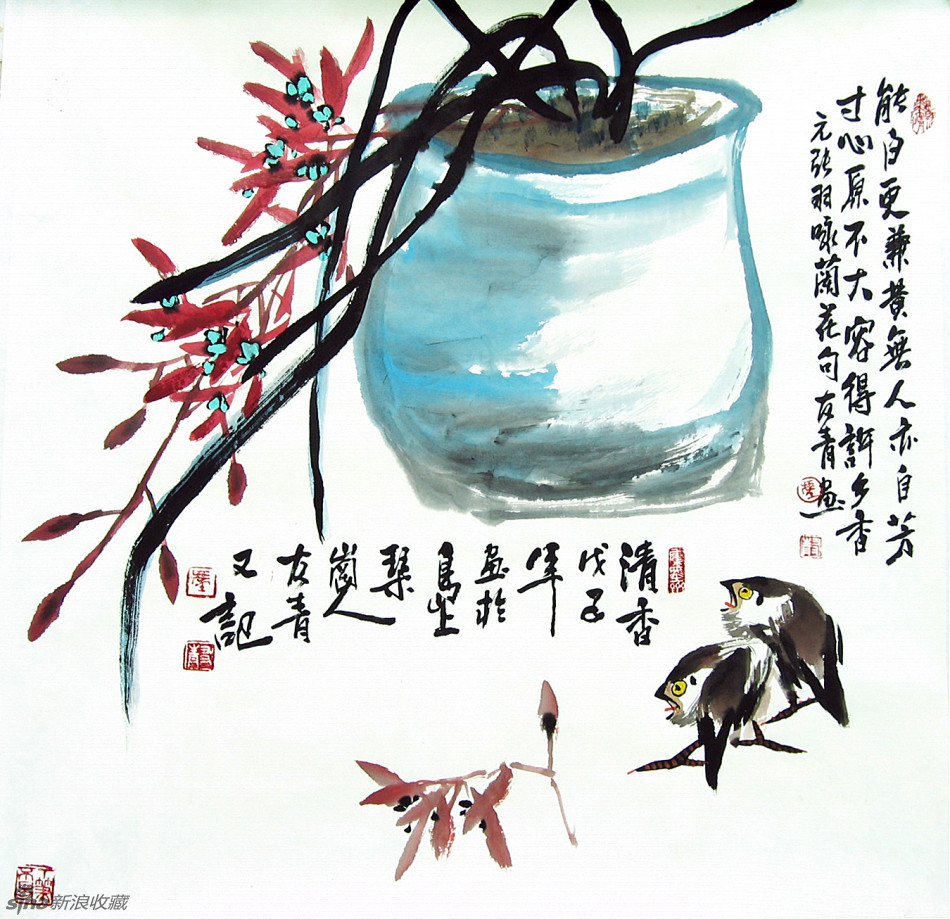 能白更兼黄無人亦自芳
寸心原不大容得許多香
元张羽咏蘭花句友青画
清香
戊子
年
画於
島上
琴
岛人
友青
又記
sina新浪收藏